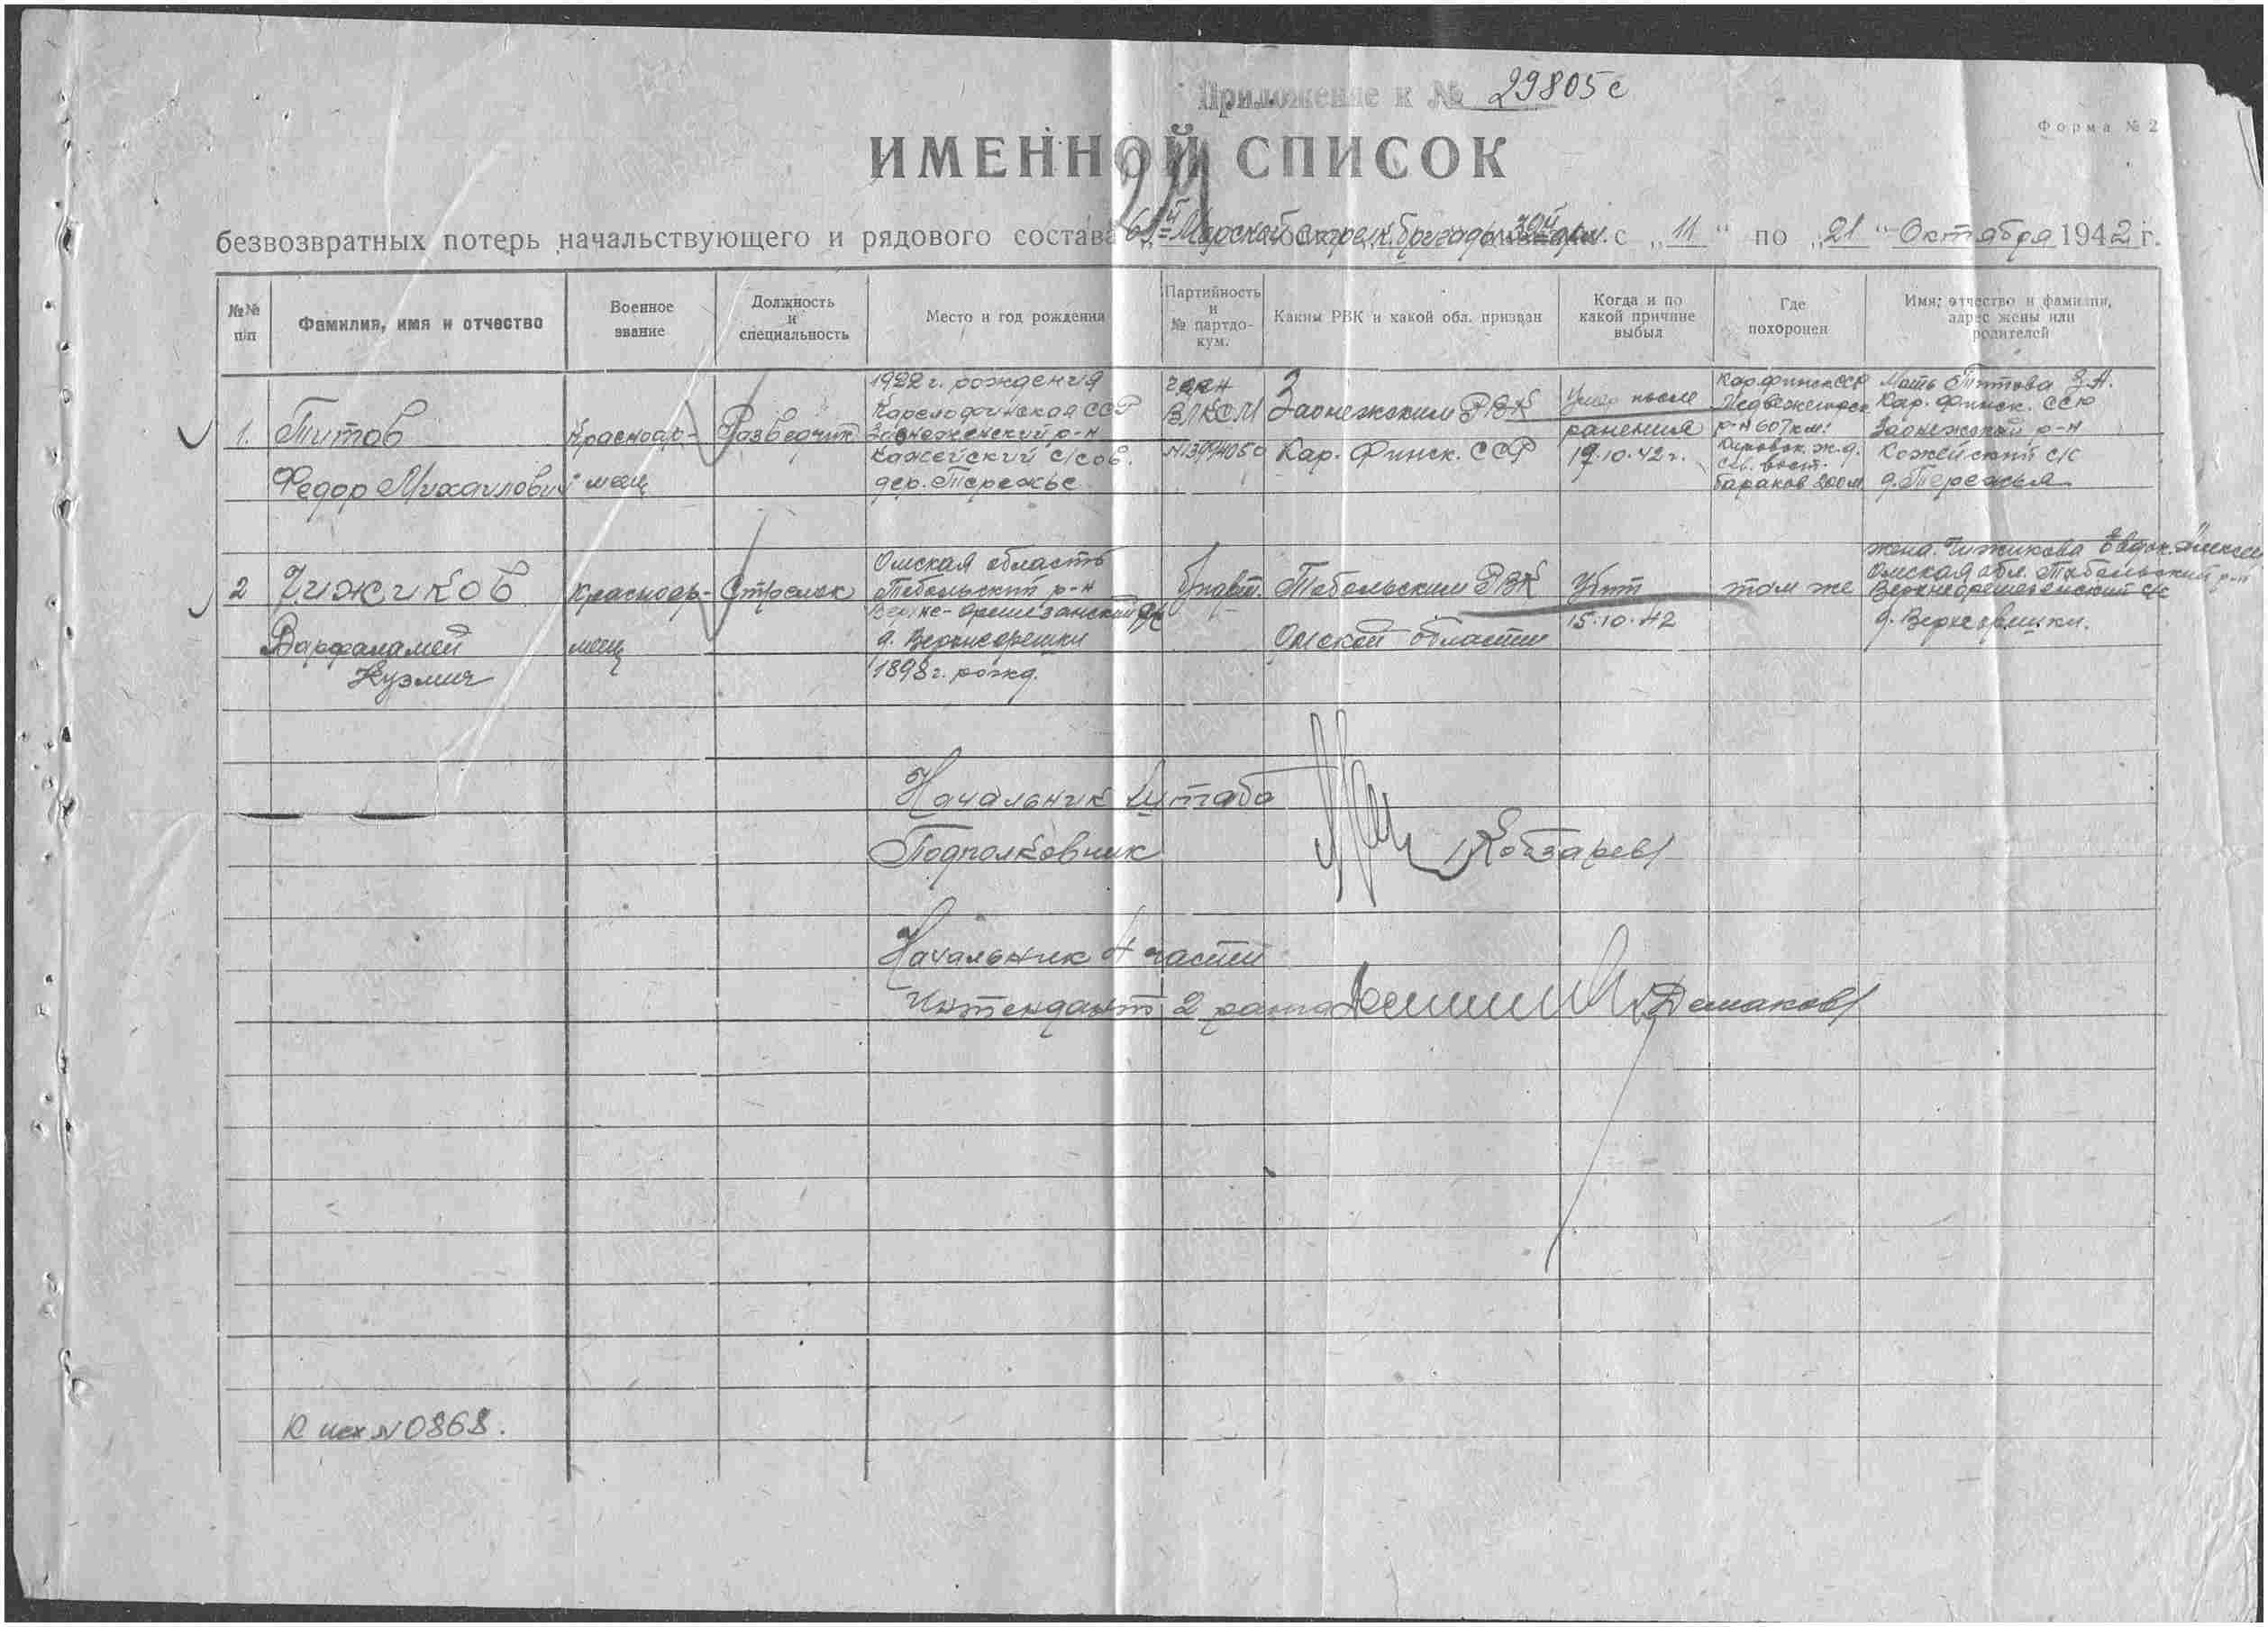 Приложение к № 29805с
Форма № 2
ИМЕННОЙ СПИСОК
безвозвратных потерь начальствующего и рядового состава Морской стрелк. бригады с „11“ по „21“ Октября 1942 г.
№№ п/п
Фамилия, имя и отчество
Военное звание
Должность и специальность
Место и год рождения
Партийность и № партдокум.
Каким РВК и какой обл. призван
Когда и по какой причине выбыл
Где похоронен
Имя, отчество и фамилия, адрес жены или родителей
1.
Титов
Федор Михайлович
Красноар-
меец
Разведчик
1922 г. рождения
Карелофинская ССР
Заонежский р-н
Кажейский с/сов.
дер. Тережье
член
ВЛКСМ
№13994050
Заонежским РВК
Кар. Финск. ССР
Умер после
ранения
19.10.42 г.
Кар. финск ССР
Медвежегорск
р-н 607 км.
Кировск. ж.д.
сев. вост.
бараков 200 м.
Мать Титова З.А.
Кар. Финск. ССР
Заонежский р-н
Кожейский с/с
д. Тережья
2
Чижиков
Варфаламей
Кузмич
Красноар-
меец
Стрелок
Омская область
Тобольский р-н
д. Верхнеарешки
1898 г. рожд.
Тобольским РВК
Омской области
Убит
15.10.42
там же
жена. Чижикова Евдок. Алексеев
Омская обл. Тобольский р-н
Начальник Штаба
Подполковник /Кобзарев/
Начальник 4 части
Интендант 2 ранга /Демаков/
К исх № 0868.